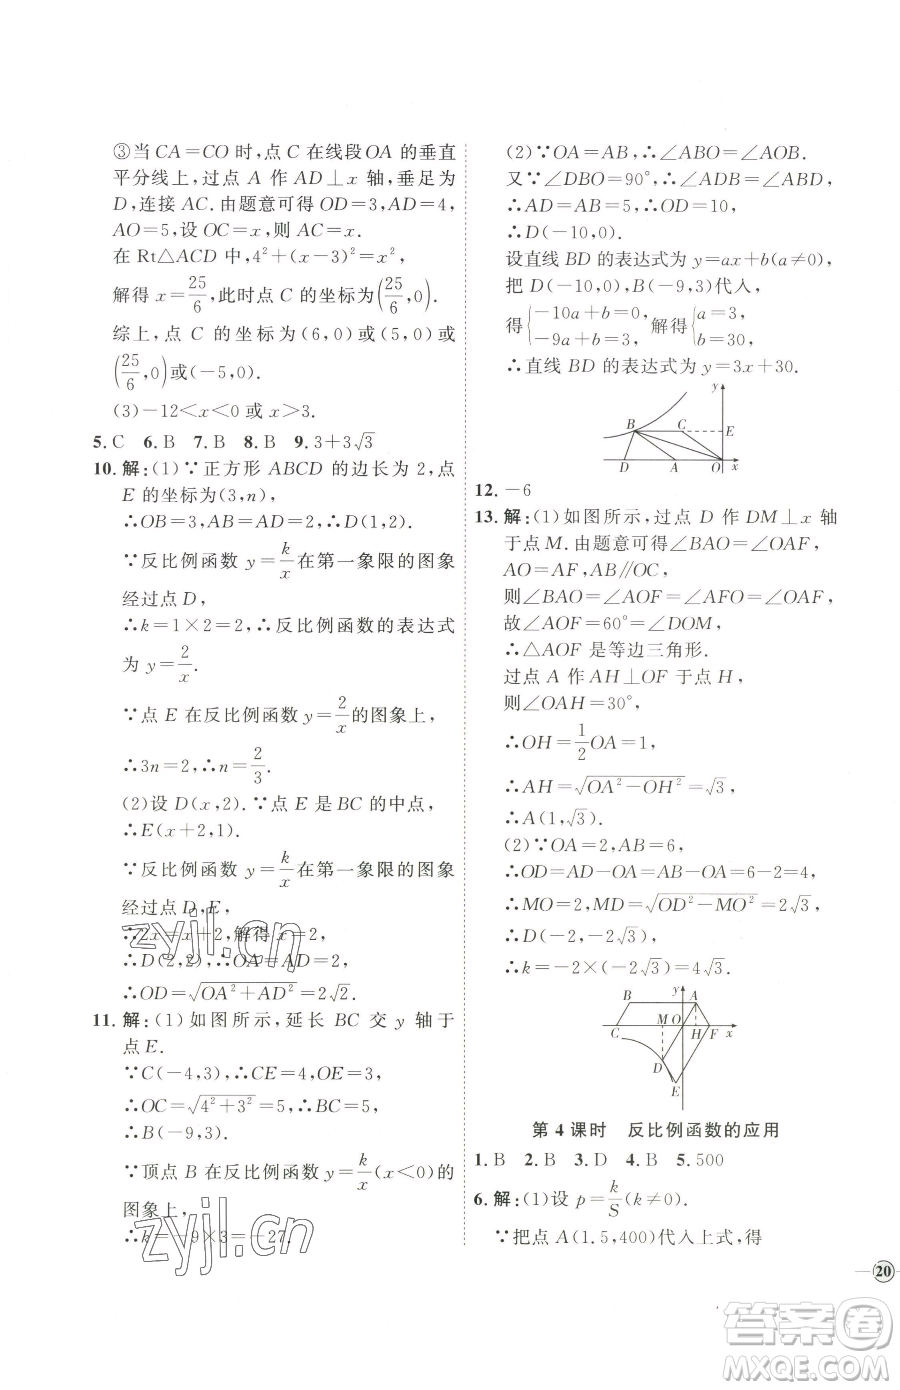 ③当 CA=CO 时,点 C 在线段OA 的垂直
平分线上,过点 A 作 AD⊥x 轴,垂足为
D,连接 AC. 由题意可得 OD=3,AD=4,
AO=5,设 OC=x,则 AC=x.
在 Rt△ACD 中,4²+(x-3)²=x²,
解得 x=25/6,此时点 C 的坐标为(25/6,0).
综上,点 C 的坐标为(6,0)或(5,0)或
(25/6,0)或(-5,0).
(3)-12<x<0 或 x>3.
5. C 6. B 7. B 8. B 9. 3+3√3
10. 解:(1)∵正方形 ABCD 的边长为 2,点
E 的坐标为(3,n),
∴OB=3,AB=AD=2,∴D(1,2).
∵反比例函数 y=k/x在第一象限的图象
经过点 D,
∴k=1×2=2,∴反比例函数的表达式
为 y=2/x.
∵点 E 在反比例函数 y=2/x的图象上,
∴3n=2,∴n=2/3.
(2)设 D(x,2). ∵点 E 是 BC 的中点,
∴E(x+2,1).
∵反比例函数 y=k/x在第一象限的图象
经过点 D,E,
∴2x=x+2,解得 x=2,
∴D(2,2),∴OA=AD=2,
∴OD=√(OA²+AD²)=2√2.
11. 解:(1)如图所示,延长 BC 交 y 轴于
点 E.
∵C(-4,3),∴CE=4,OE=3,
∴OC=√(4²+3²)=5,∴BC=5,
∴B(-9,3).
∵顶点 B 在反比例函数 y=k/x(x<0)的
图象上,
∴k=-9×3=-27.
(2)∵OA=AB,∴∠ABO=∠AOB.
又∵∠DBO=90°,∴∠ADB=∠ABD,
∴AD=AB=5,∴OD=10,
∴D(-10,0).
设直线 BD 的表达式为 y=ax+b(a≠0),
把 D(-10,0),B(-9,3)代入,
得{-10a+b=0, -9a+b=3, 解得{a=3, b=30,
∴直线 BD 的表达式为 y=3x+30.
y
B C E
D A O x
12. -6
13. 解:(1)如图所示,过点 D 作 DM⊥x 轴
于点 M. 由题意可得∠BAO=∠OAF,
AO=AF,AB∥OC,
则∠BAO=∠AOF=∠AFO=∠OAF,
故∠AOF=60°=∠DOM,
∴△AOF 是等边三角形.
过点 A 作 AH⊥OF 于点 H,
则∠OAH=30°,
∴OH=1/2OA=1,
∴AH=√(OA²-OH²)=√3,
∴A(1,√3).
(2)∵OA=2,AB=6,
∴OD=AD-OA=AB-OA=6-2=4,
∴MO=2,MD=√(OD²-MO²)=2√3,
∴D(-2,-2√3),
∴k=-2×(-2√3)=4√3.
y
B A
M O
C H F x
D
E
第 4 课时 反比例函数的应用
1. B 2. B 3. D 4. B 5. 500
6. 解:(1)设 p=k/S(k≠0).
∵把点 A(1.5,400)代入上式,得
20
zyjl.cn
zyjl.cn
答案圈
MXQE.COM